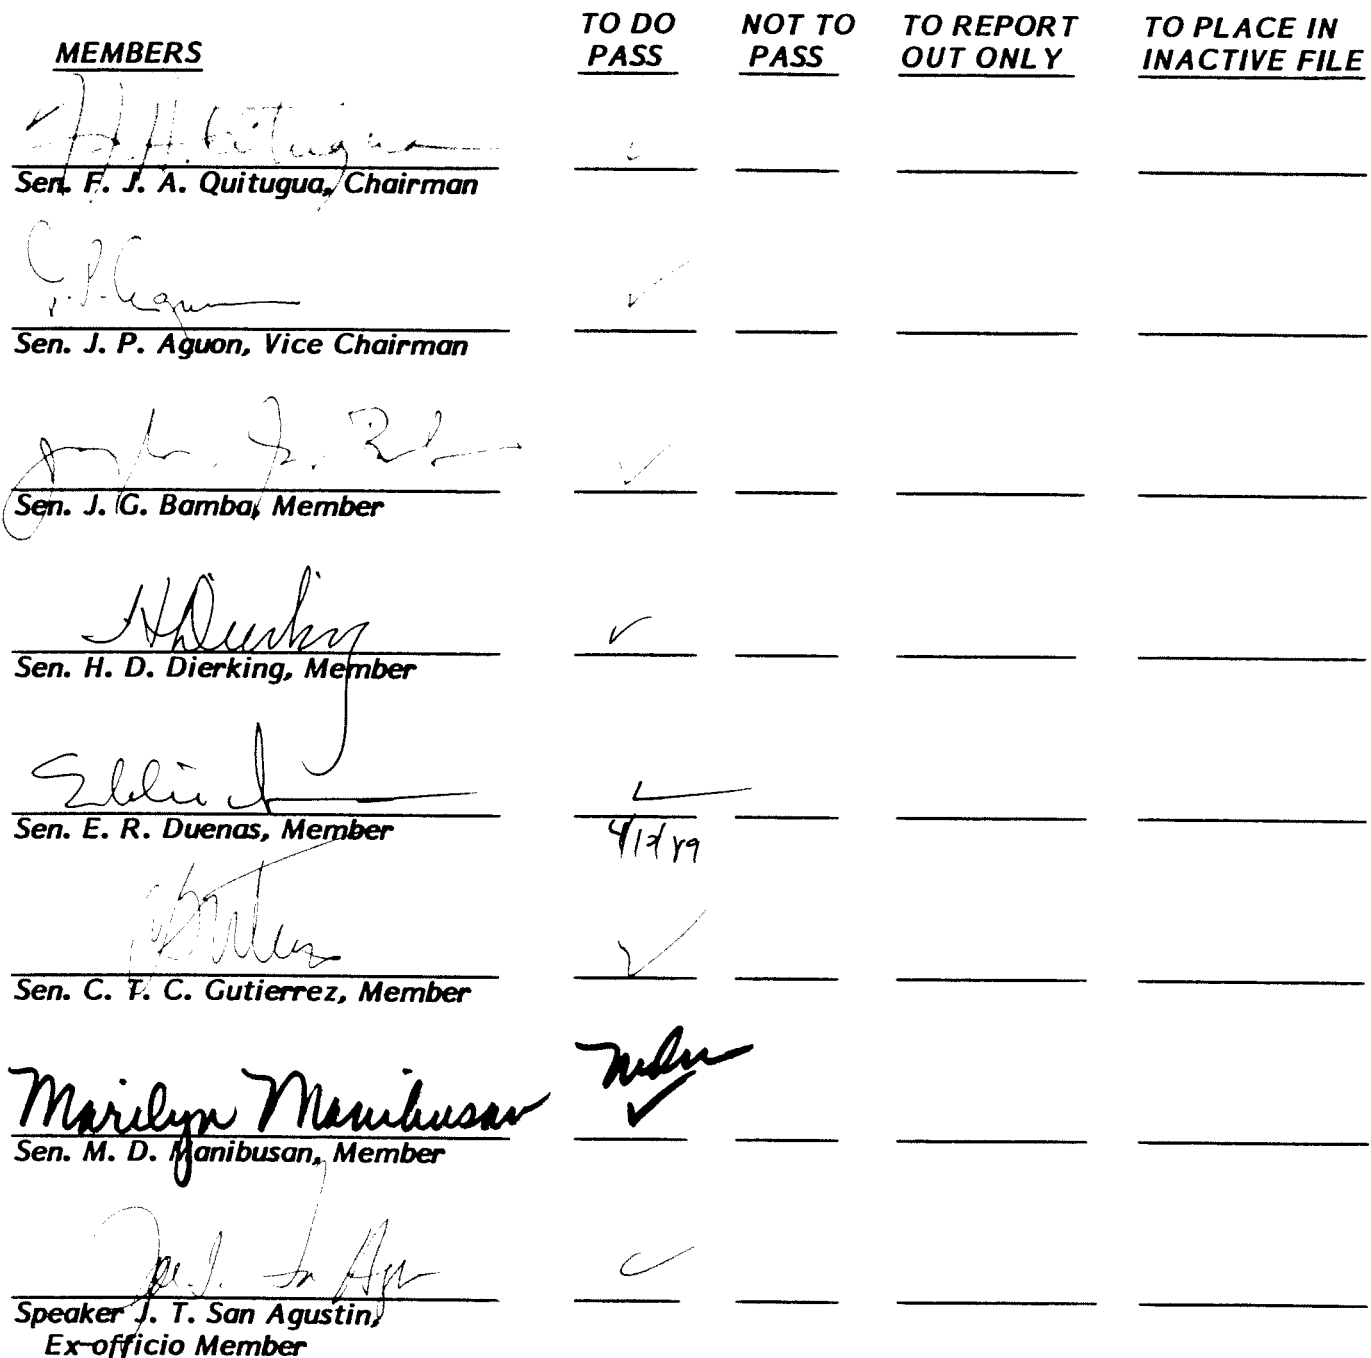 MEMBERS TO DO PASS NOT TO PASS TO REPORT OUT ONLY TO PLACE IN INACTIVE FILE
Sen. F. J. A. Quitugua, Chairman
Sen. J. P. Aguon, Vice Chairman
Sen. J. G. Bamba, Member
Sen. H. D. Dierking, Member
Eddie
Sen. E. R. Duenas, Member
Sen. C. T. C. Gutierrez, Member
Marilyn Manibusan
Sen. M. D. Manibusan, Member
Speaker J. T. San Agustin,
Ex-officio Member